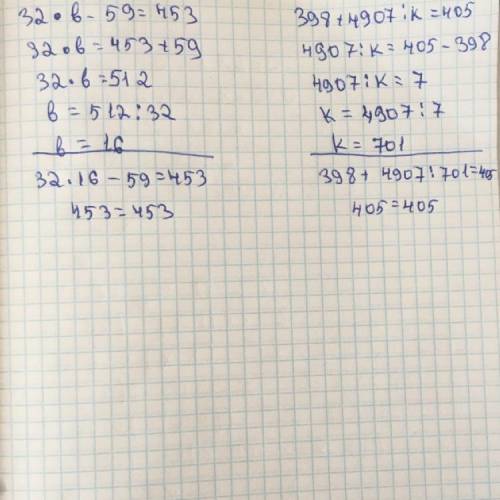 32 • в - 59 = 453
32 • в = 453 + 59
32 • в = 512
в = 512 : 32
в = 16
32 • 16 - 59 = 453
453 = 453
398 + 4907 : к = 405
4907 : к = 405 - 398
4907 : к = 7
к = 4907 : 7
к = 701
398 + 4907 : 701 = 405
405 = 405